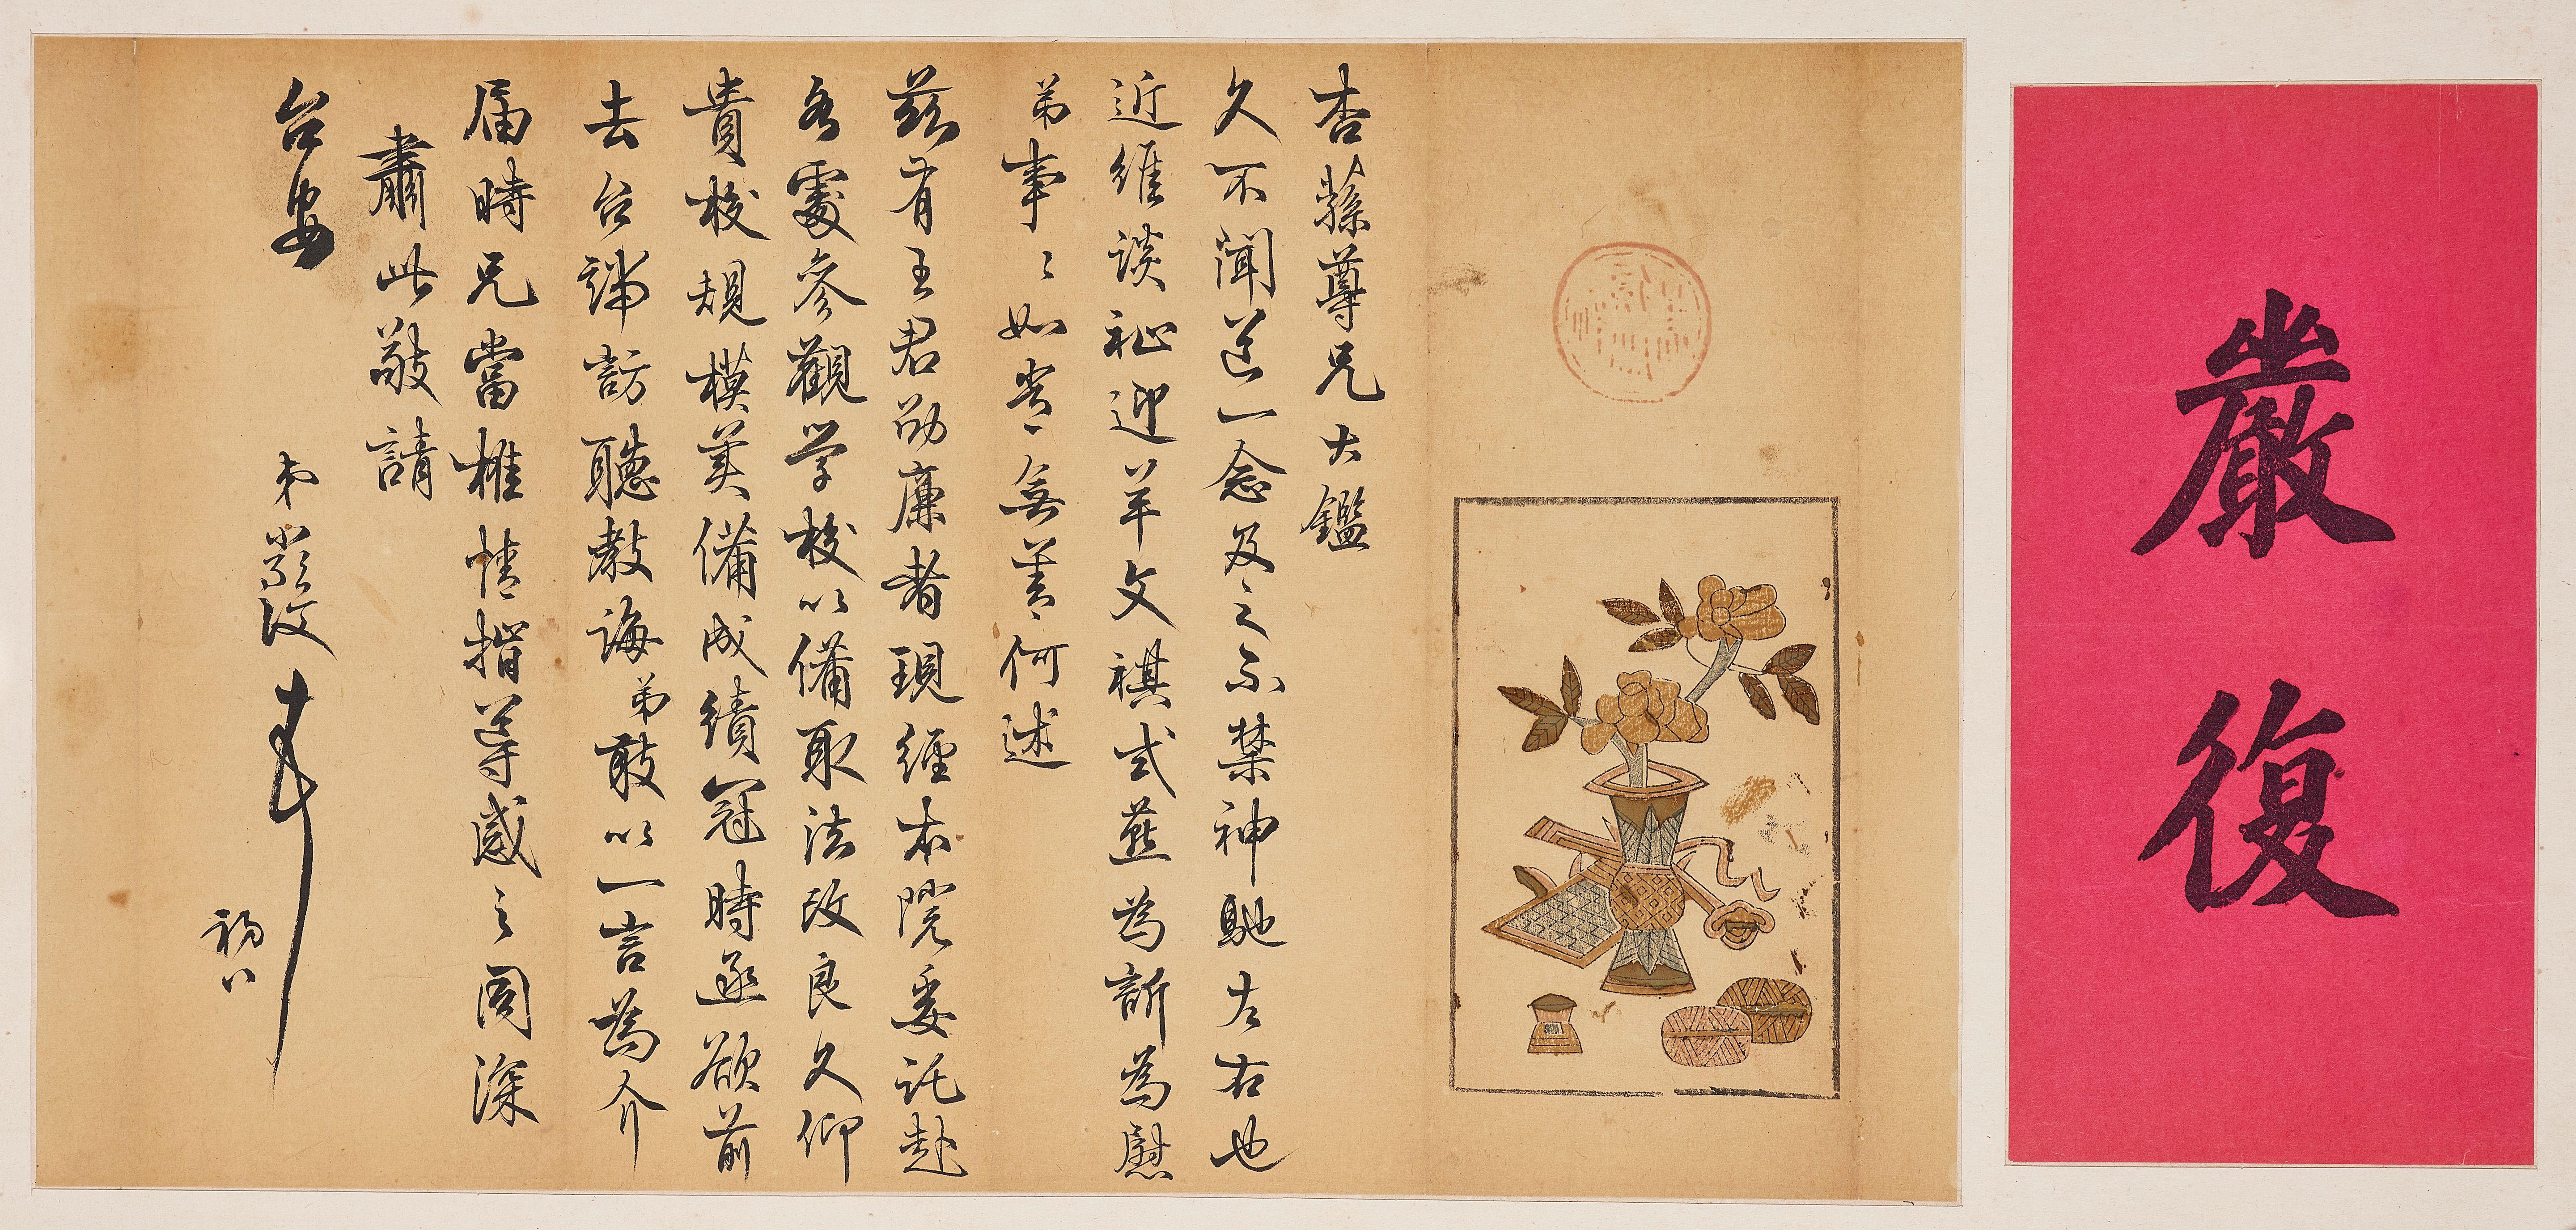 嚴復
杏蓀尊兄大鑑
久不聞道一念及之不禁神馳左右也
近維談祉迎羊文祺式燕為訢為慰
弟事々如常無善何述
茲有王君劭廉者現經本院委託赴
各處參觀学校以備取法改良久仰
貴校規模美備成績冠時亟欲前
去台端訪聽教誨弟敢以一言為介
屆時兄當推情指導感之同深
肅此敬請
台安
弟嚴復
初八